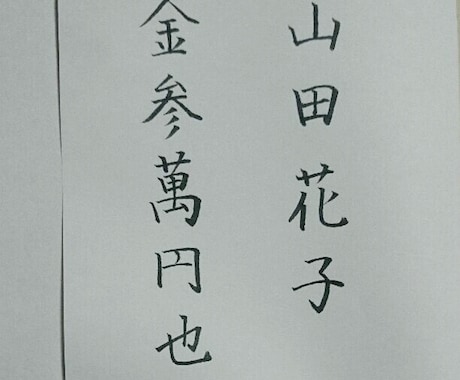 山田花子
金参萬円也